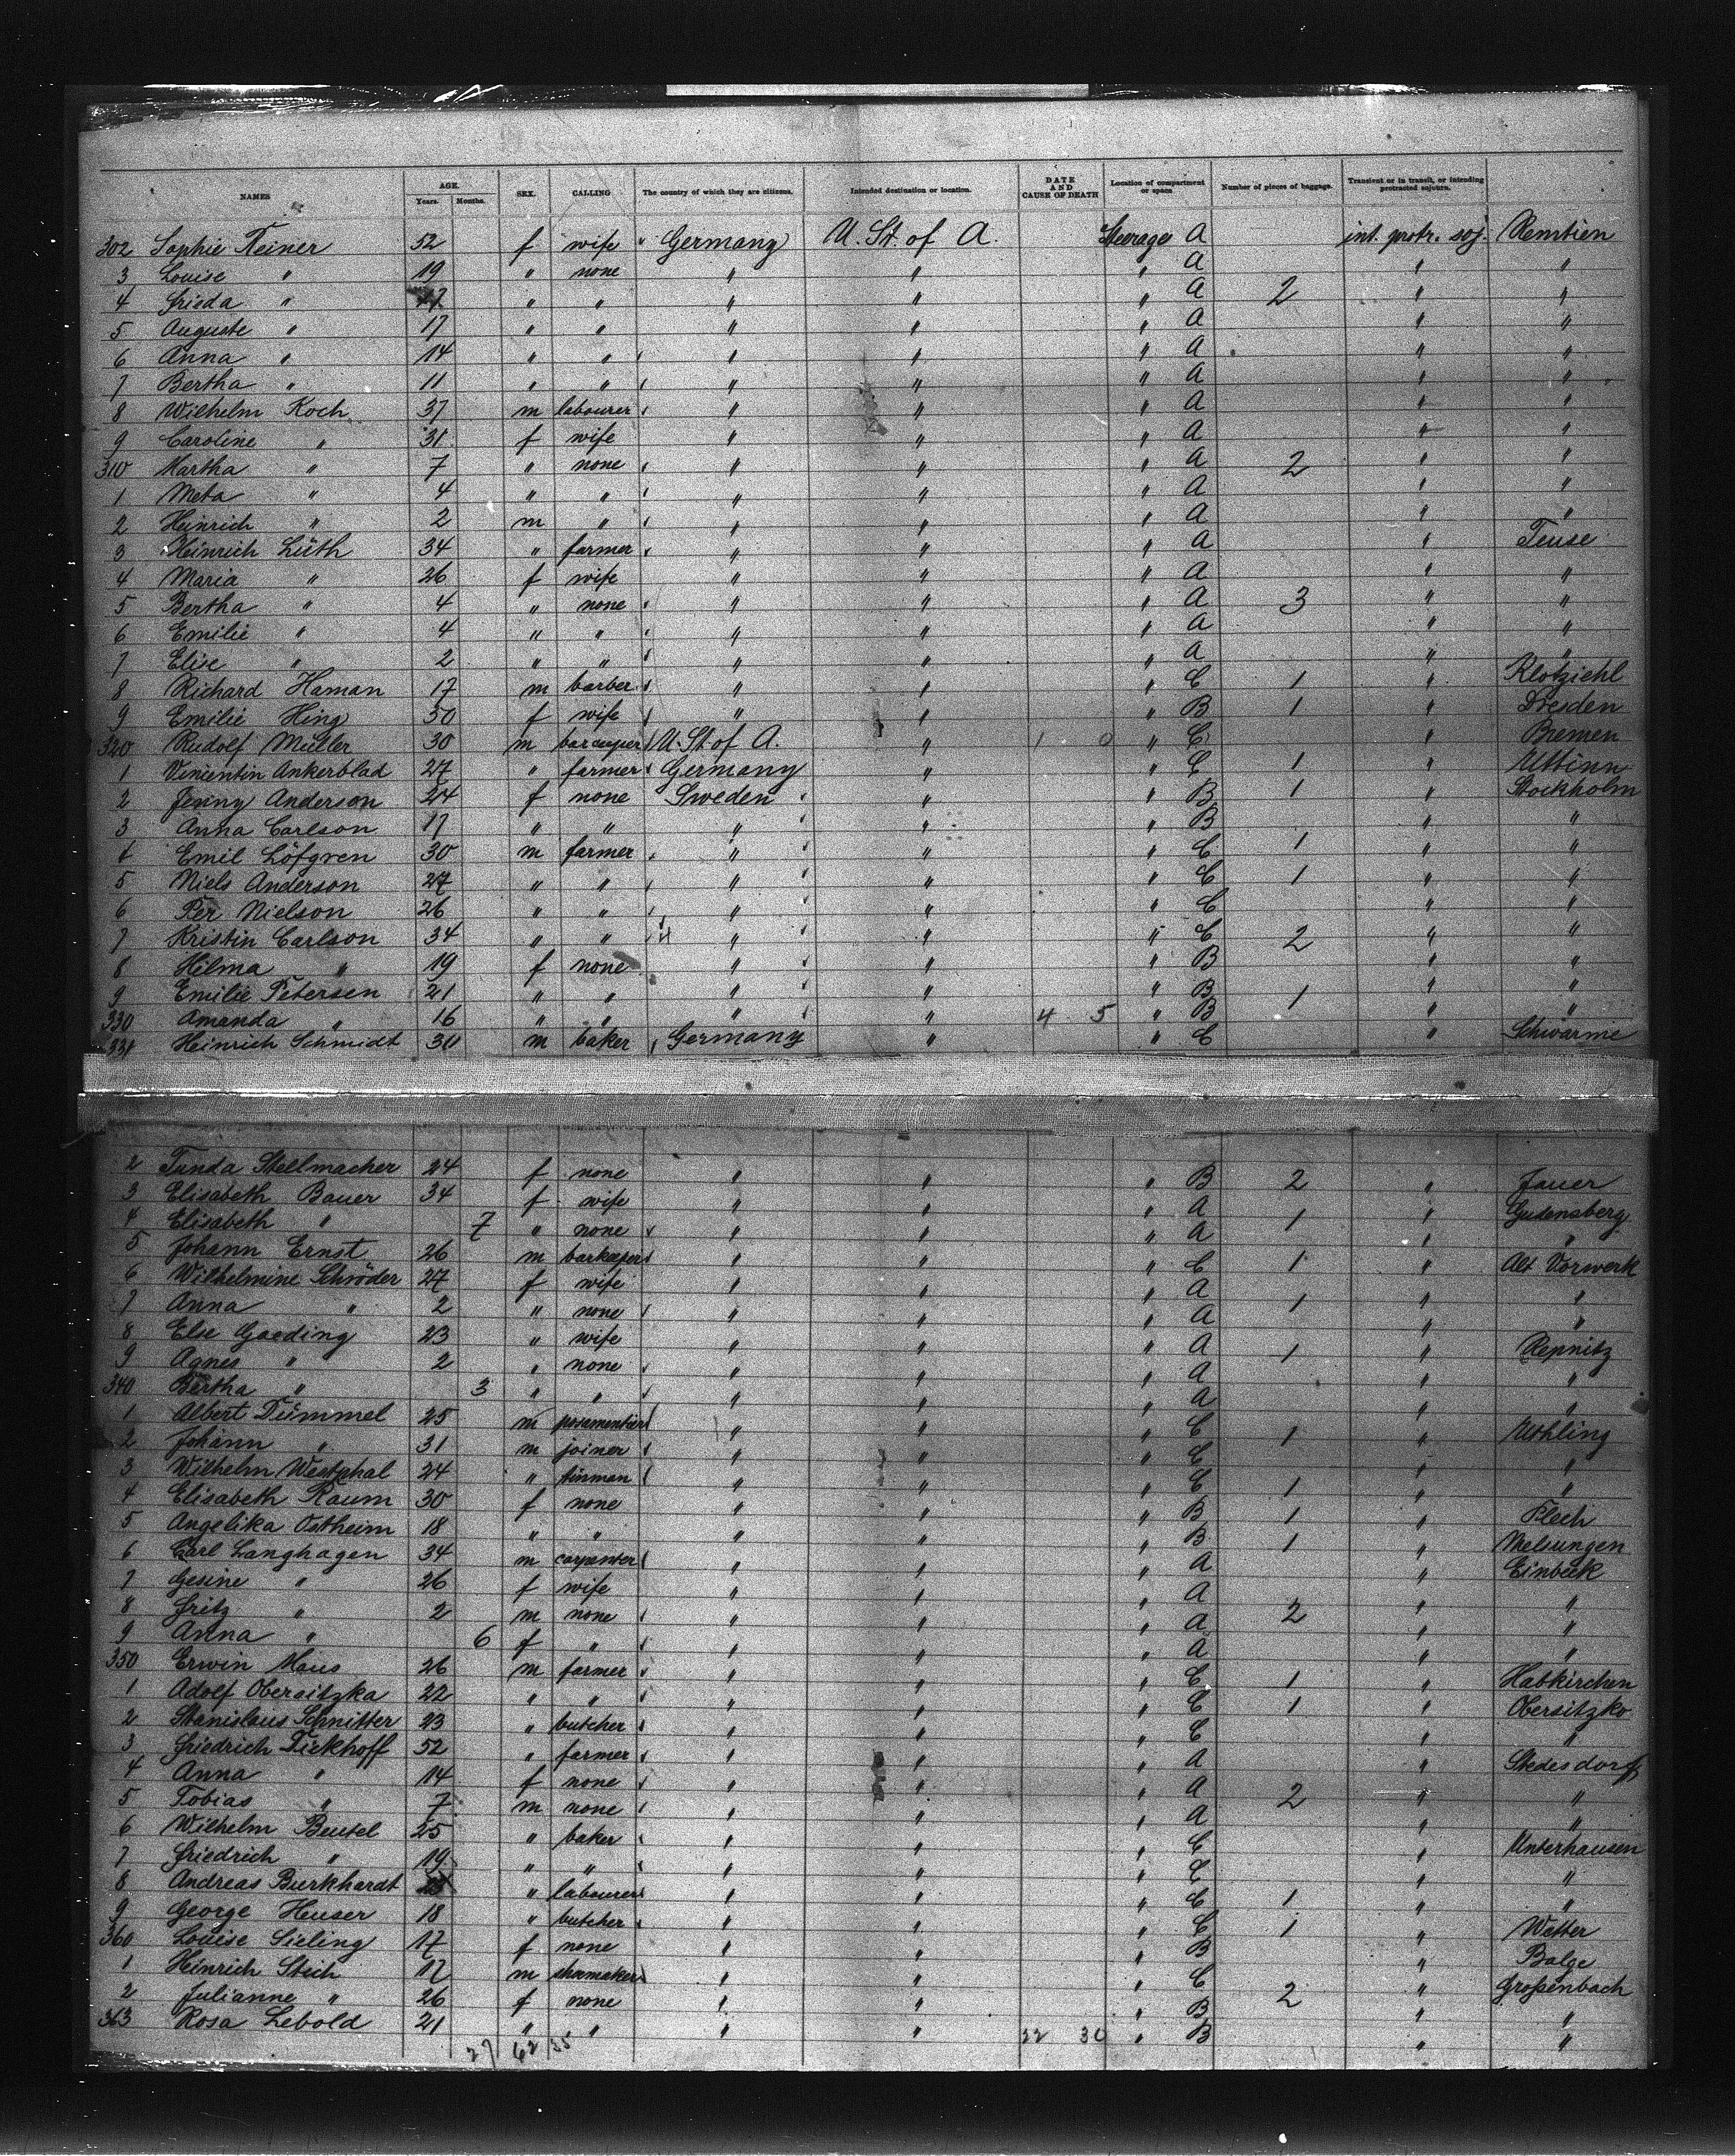 NAMES AGE. Years. Months. SEX. CALLING The country of which they are citizens. Intended destination or location. DATE AND CAUSE OF DEATH Location of compartment or space Number of pieces of baggage. Transient or in transit, or intending protracted sojourn.
302 Sophie Steiner 52 f wife " Germany U. St. of A. Steerage A int. protr. soj. Rembien
3 Louise " 19 " none " " " A " "
4 Frieda " 17 " " " " " A 2 " "
5 Auguste " 17 " " " " " A " "
6 Anna " 14 " " " " " A " "
7 Bertha " 11 " " " " " A " "
8 Wilhelm Koch 37 m labourer " " " A " "
9 Caroline " 31 f wife " " " A " "
310 Martha " 7 " none " " " A 2 " "
1 Meta " 4 " " " " " A " "
2 Heinrich " 2 m " " " " A " "
3 Heinrich Lüth 34 " farmer " " " A " Teuse
4 Maria " 26 f wife " " " A " "
5 Bertha " 4 " none " " " A 3 " "
6 Emilie " 4 " " " " " A " "
7 Elise " 2 " " " " " A " "
8 Richard Haman 17 m barber " " " C 1 " Klotziehl
9 Emilie Hing 50 f wife " " " B 1 " Dresden
320 Rudolf Müller 30 m U. St. of A. " 1 0 " C " Bremen
1 Ankerblad 27 " farmer Germany " " C 1 " Uttinn
2 Jenny Anderson 24 f none Sweden " " B 1 " Stockholm
3 Anna Carlson 17 " " " " " B " "
4 Emil Löfgren 30 m farmer " " " C 1 " "
5 Niels Anderson 27 " " " " " C 1 " "
6 Per Nielson 26 " " " " " C " "
7 Kristin Carlson 34 " " 4 " " " C 2 " "
8 Hilma " 19 f none " " " B " "
9 Emilie Petersen 21 " " " " " B 1 " "
330 Amanda " 16 " " " " 4 5 " B " "
331 Heinrich Schmidt 30 m baker Germany " " C " Schwarme
2 Tunda Stellmacher 24 f none " " " B 2 " Jauer
3 Elisabeth Bauer 34 f wife " " " A " Gudensberg
4 Elisabeth " 7 " none " " " A 1 " "
5 Johann Ernst 26 m barkeeper " " " C 1 " Alt Vorwerk
6 Wilhelmine Schröder 27 f wife " " " A " "
7 Anna " 2 " none " " " A 1 " "
8 Else Gaeding 23 " wife " " " A " Repnitz
9 Agnes " 2 " none " " " A 1 " "
340 Bertha " 3 " " " " " A " "
1 Albert Tümmel 25 m posamentier " " " C 1 " Uthling
2 Johann " 31 m joiner " " " C " "
3 Wilhelm Westphal 24 " tinman " " " C 1 " "
4 Elisabeth Raum 30 f none " " " B 1 " Plech
5 Angelika Ostheim 18 " " " " " B 1 " Melsungen
6 Carl Langhagen 34 m carpenter " " " A " Einbeck
7 Gesine " 26 f wife " " " A " "
8 Fritz " 2 m none " " " A 2 " "
9 Anna " 6 f " " " " A " "
350 Erwin Maus 26 m farmer " " " C 1 " Habkirchen
1 Adolf Obersitzka 22 " " " " " C 1 " Obersitzko
2 Stanislaus Schnitter 23 " butcher " " " C " "
3 Friedrich Tiekhoff 52 " farmer " " " A " Stedesdorf
4 Anna " 14 f none " " " A 2 " "
5 Tobias " 7 m none " " " A " "
6 Wilhelm Beutel 25 " baker " " " C " Unterhausen
7 Friedrich " 19 " " " " " C " "
8 Andreas Burkhardt " labourer " " " C 1 " "
9 George Heuser 18 " butcher " " " C 1 " Wetter
360 Louise Sieling 17 f none " " " B " Balge
1 Heinrich Stich 17 m shoemaker " " " C " Großenbach
2 Julianne " 26 f none " " " B 2 " "
363 Rosa Lebold 21 " " " " 22 30 " B " "
27 62 35